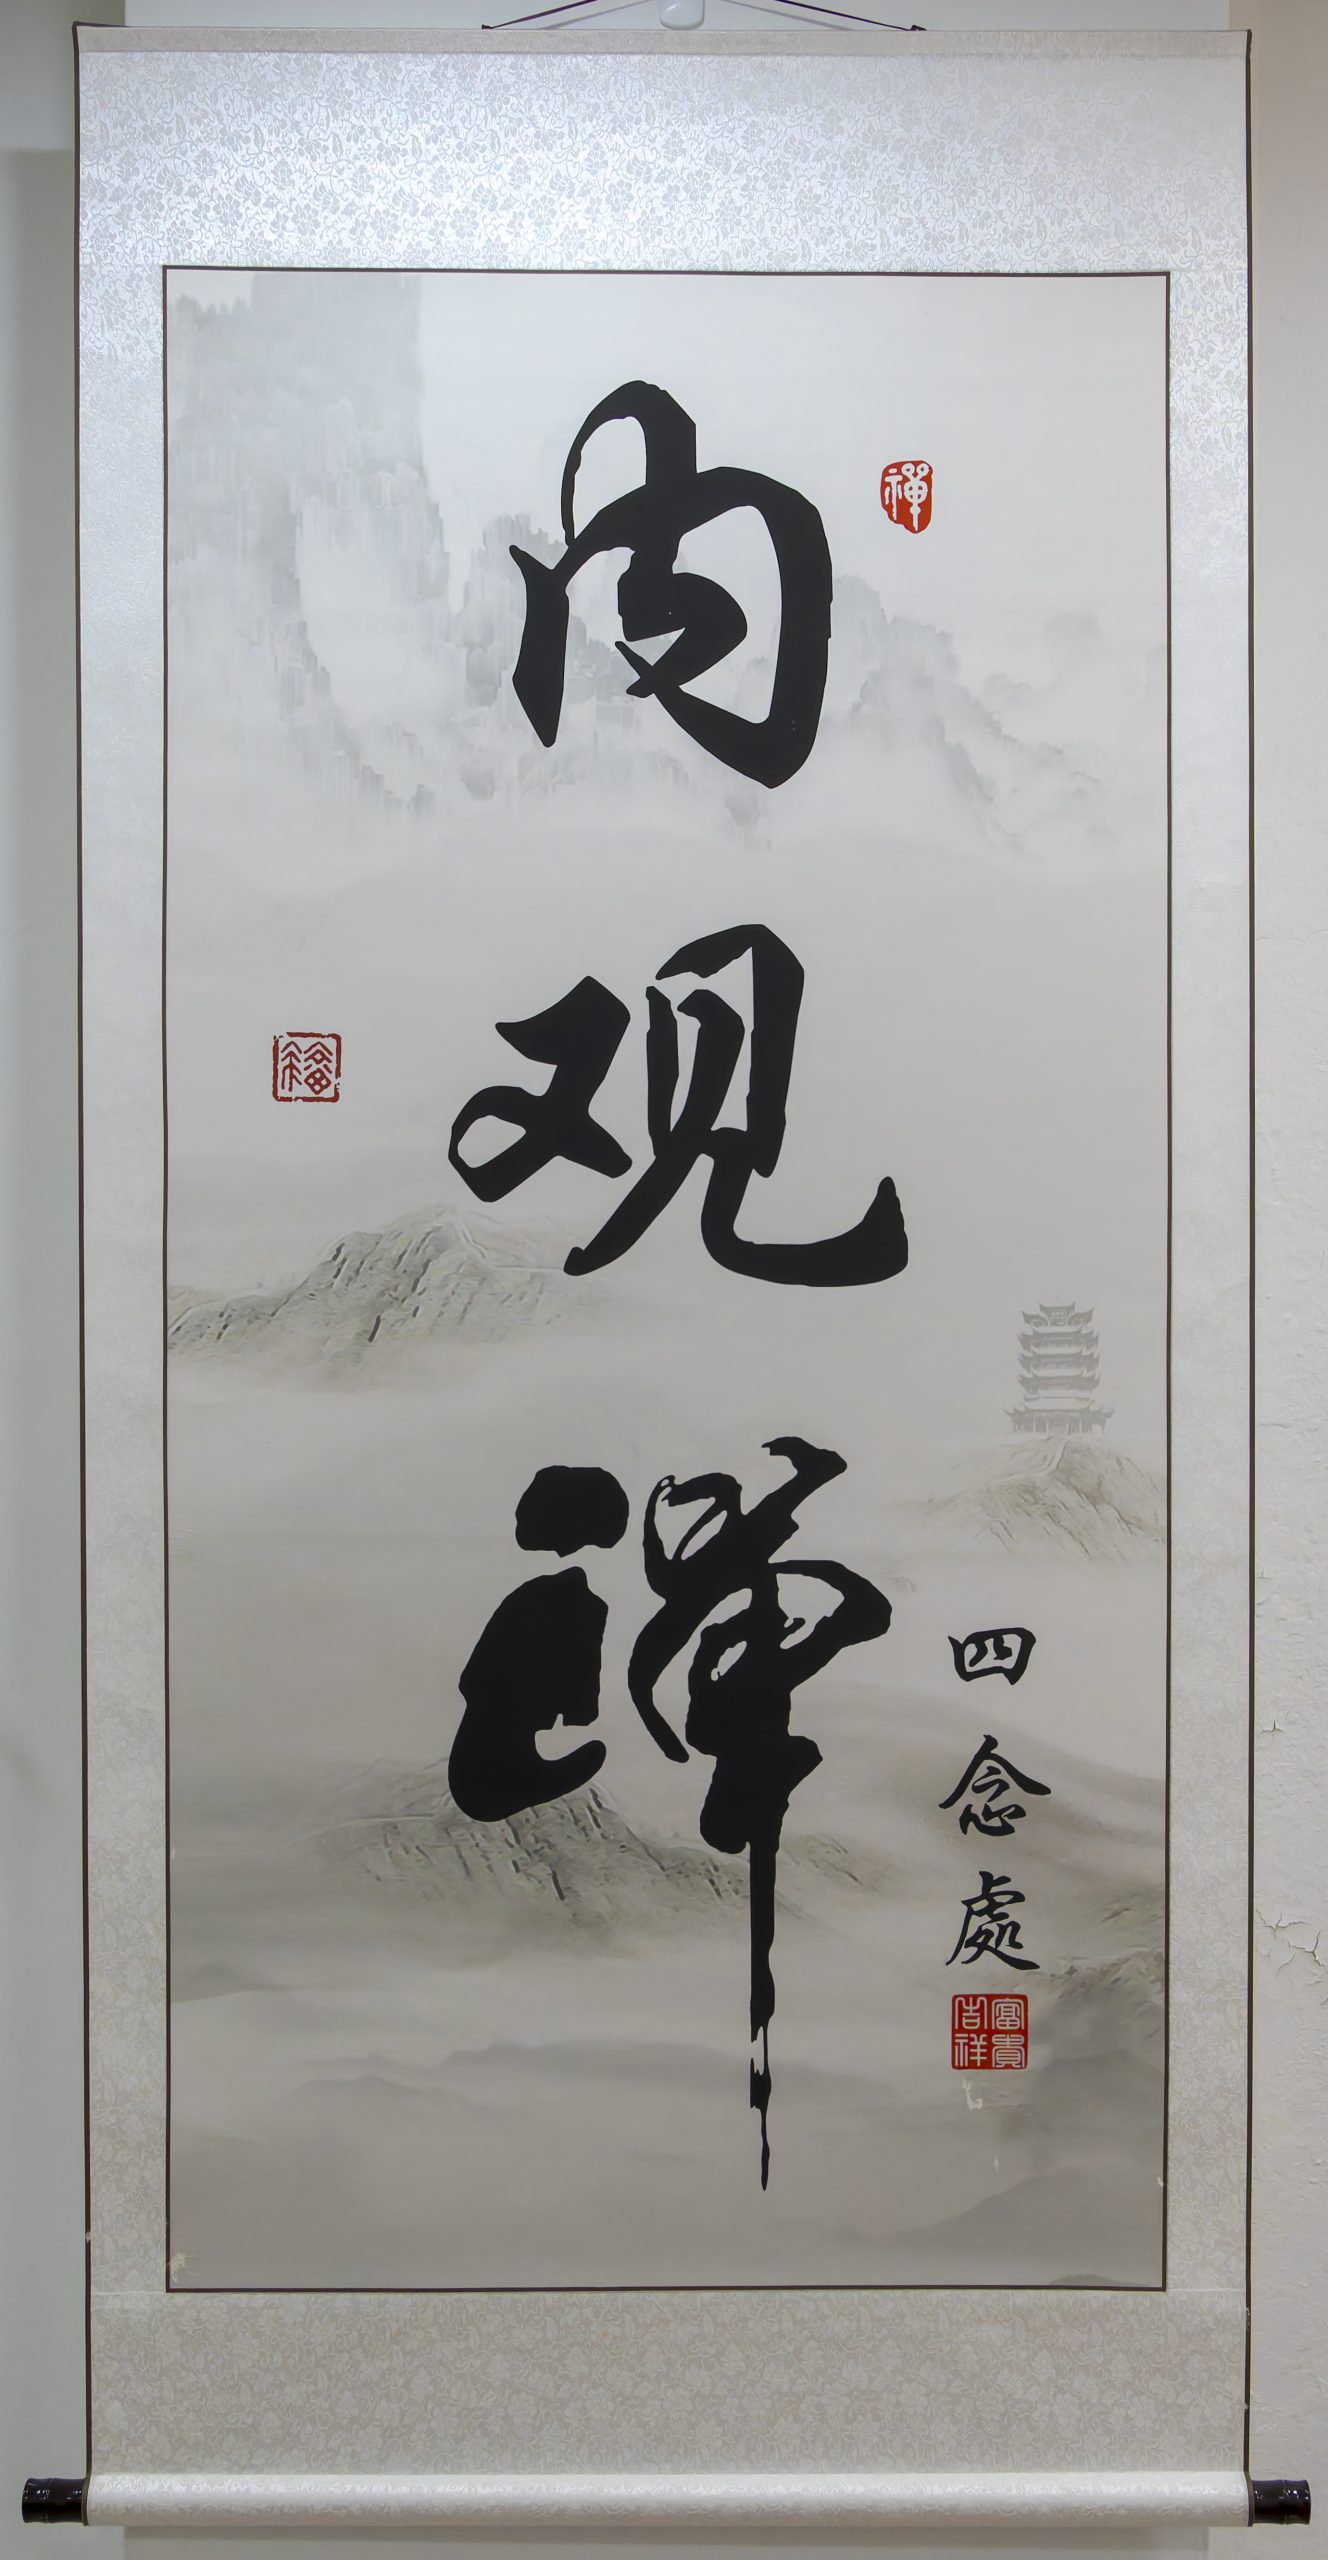 内观禅
四念處
禪
福
富貴吉祥